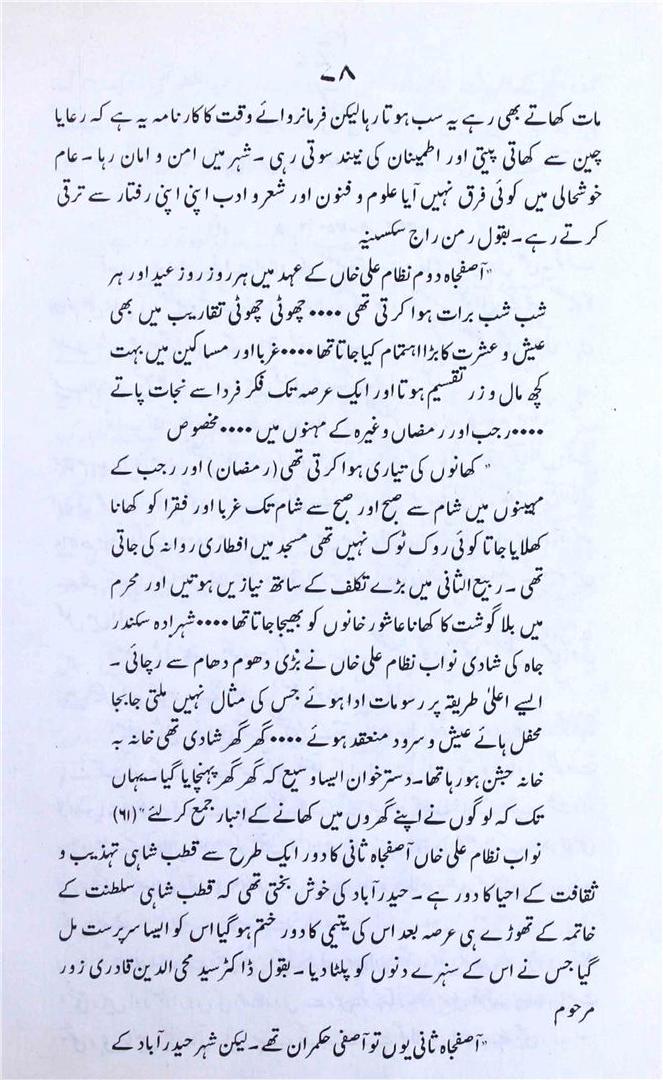 ۸-
مات کھاتے بھی رہے یہ سب ہوتا رہا لیکن فرمانروائے وقت کا کارنامہ یہ ہے کہ رعایا
چین سے کھاتی پیتی اور اطمینان کی نیند سوتی رہی ۔ شہر میں امن و امان رہا ۔ عام
خوشحالی میں کوئی فرق نہیں آیا علوم و فنون اور شعر و ادب اپنی اپنی رفتار سے ترقی
کرتے رہے ۔ بقول رمن راج سکسینہ
"آصفجاہ دوم نظام علی خاں کے عہد میں ہر روز روز عید اور ہر
شب شب برات ہوا کرتی تھی ۰۰۰۰ چھوٹی چھوٹی تقاریب میں بھی
عیش و عشرت کا بڑا اہتمام کیا جاتا تھا ۰۰۰۰ غربا اور مساکین میں بہت
کچھ مال و زر تقسیم ہوتا اور ایک عرصہ تک فکر فردا سے نجات پاتے
۰۰۰۰ رجب اور رمضاں وغیرہ کے مہنوں میں ۰۰۰۰ مخصوص
" کھانوں کی تیاری ہوا کرتی تھی (رمضان) اور رجب کے
مہینوں میں شام سے صبح اور صبح سے شام تک غربا اور فقرا کو کھانا
کھلایا جاتا کوئی روک ٹوک نہیں تھی مسجد میں افطاری روانہ کی جاتی
تھی ۔ ربیع الثانی میں بڑے تکلف کے ساتھ نیازیں ہوتیں اور محرم
میں بلا گوشت کا کھانا عاشور خانوں کو بھیجا جاتا تھا ۰۰۰۰ شہزادہ سکندر
جاہ کی شادی نواب نظام علی خاں نے بڑی دھوم دھام سے رچائی ۔
ایسے اعلیٰ طریقہ پر رسومات ادا ہوئے جس کی مثال نہیں ملتی جابجا
محفل ہائے عیش و سرود منعقد ہوئے ۰۰۰۰ گھر گھر شادی تھی خانہ بہ
خانہ جشن ہو رہا تھا ۔ دستر خوان ایسا وسیع کہ گھر گھر پہنچایا گیا ۔ یہاں
تک کہ لوگوں نے اپنے گھروں میں کھانے کے انبار جمع کر لئے" (۶۱)
نواب نظام علی خاں آصفجاہ ثانی کا دور ایک طرح سے قطب شاہی تہذیب و
ثقافت کے احیا کا دور ہے ۔ حیدرآباد کی خوش بختی تھی کہ قطب شاہی سلطنت کے
خاتمہ کے تھوڑے ہی عرصہ بعد اس کی یتیمی کا دور ختم ہو گیا اس کو ایسا سرپرست مل
گیا جس نے اس کے سنہرے دنوں کو پلٹا دیا ۔ بقول ڈاکٹر سید محی الدین قادری زور
مرحوم
"آصفجاہ ثانی یوں تو آصفی حکمران تھے ۔ لیکن شہر حیدرآباد کے